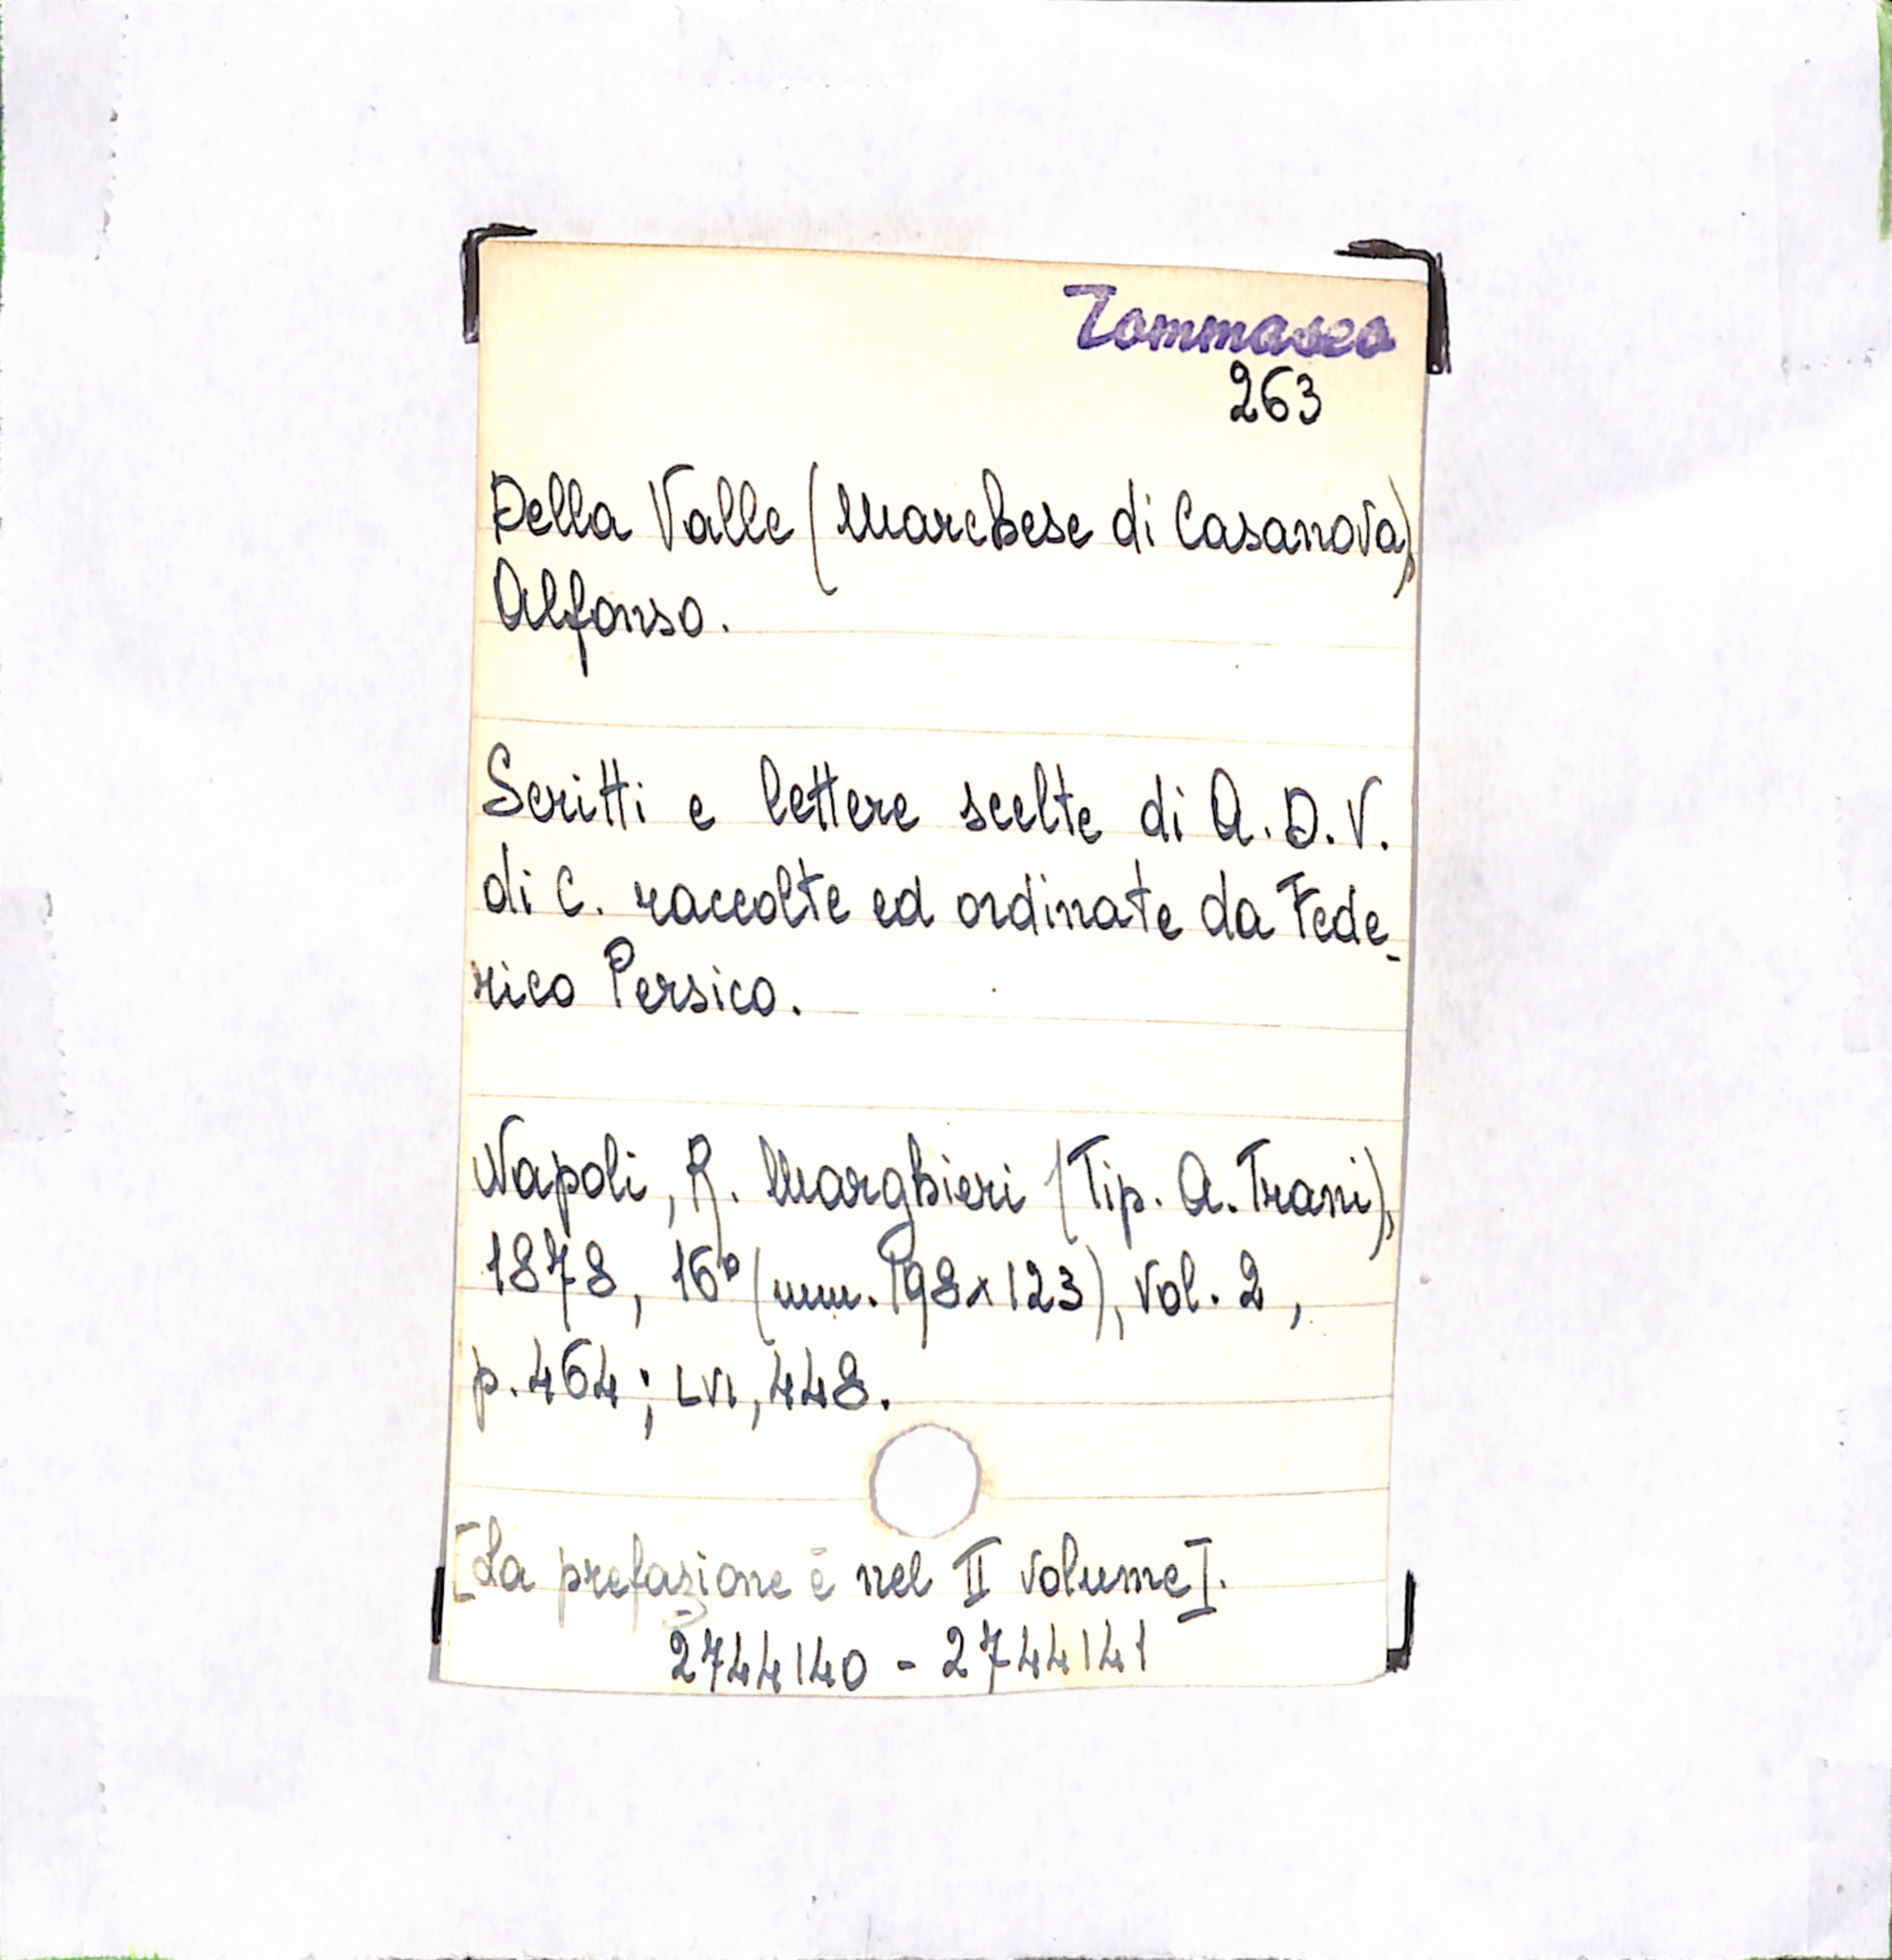 Tommaseo
263
Della Valle (Marchese di Casanova),
Alfonso.
Scritti e lettere scelte di A. D. V.
di C. raccolte ed ordinate da Fede-
rico Persico.
Napoli, R. Marghieri (Tip. A. Trani),
1878, 16° (mm. 198x123), vol. 2,
p. 464; LVI, 448.
[La prefazione è nel II volume].
2744140 - 2744141